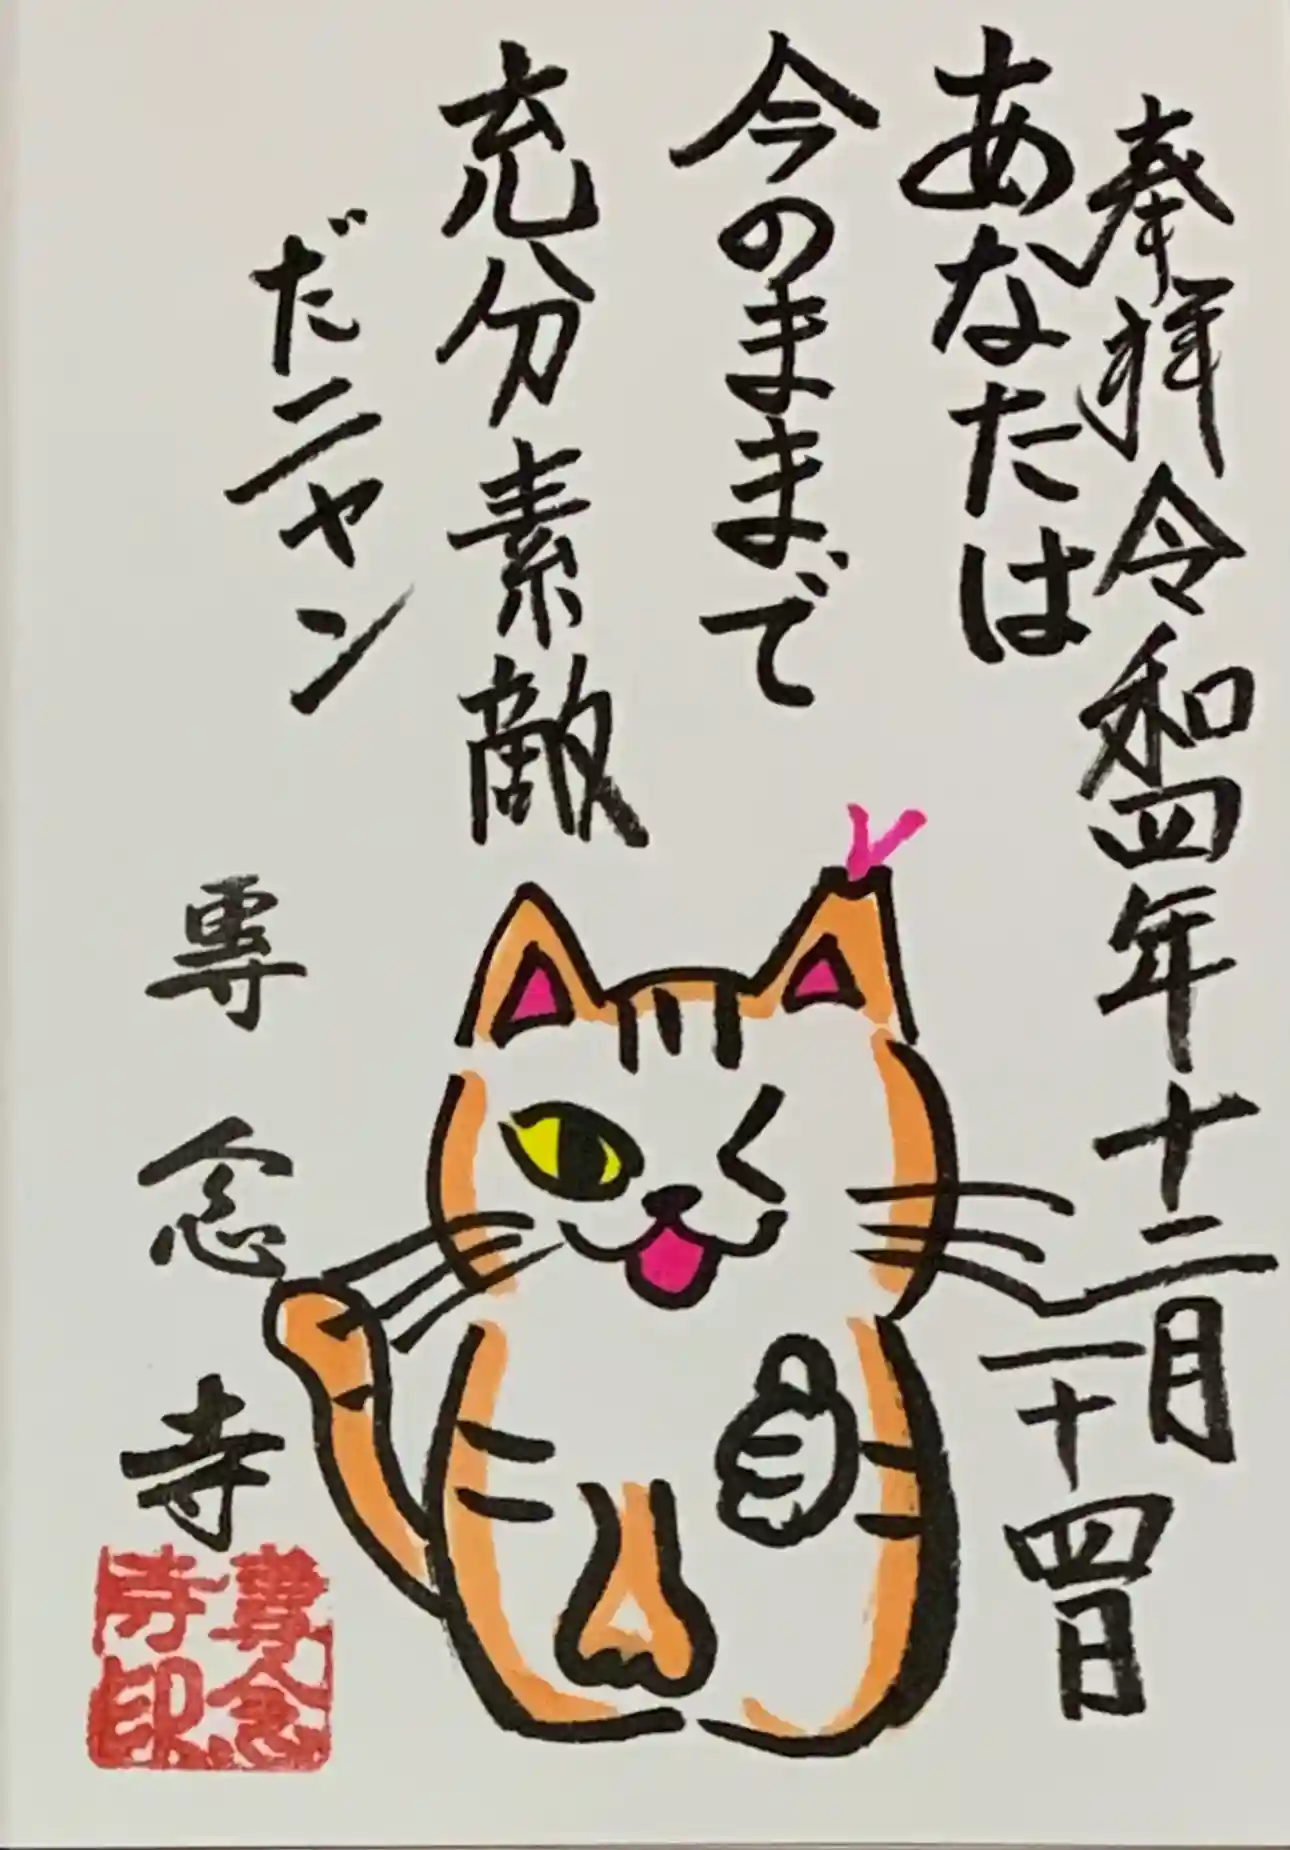 奉拝 令和四年十二月
二十四日
あなたは
今のままで
充分素敵
だニャン
専念寺
専念寺印